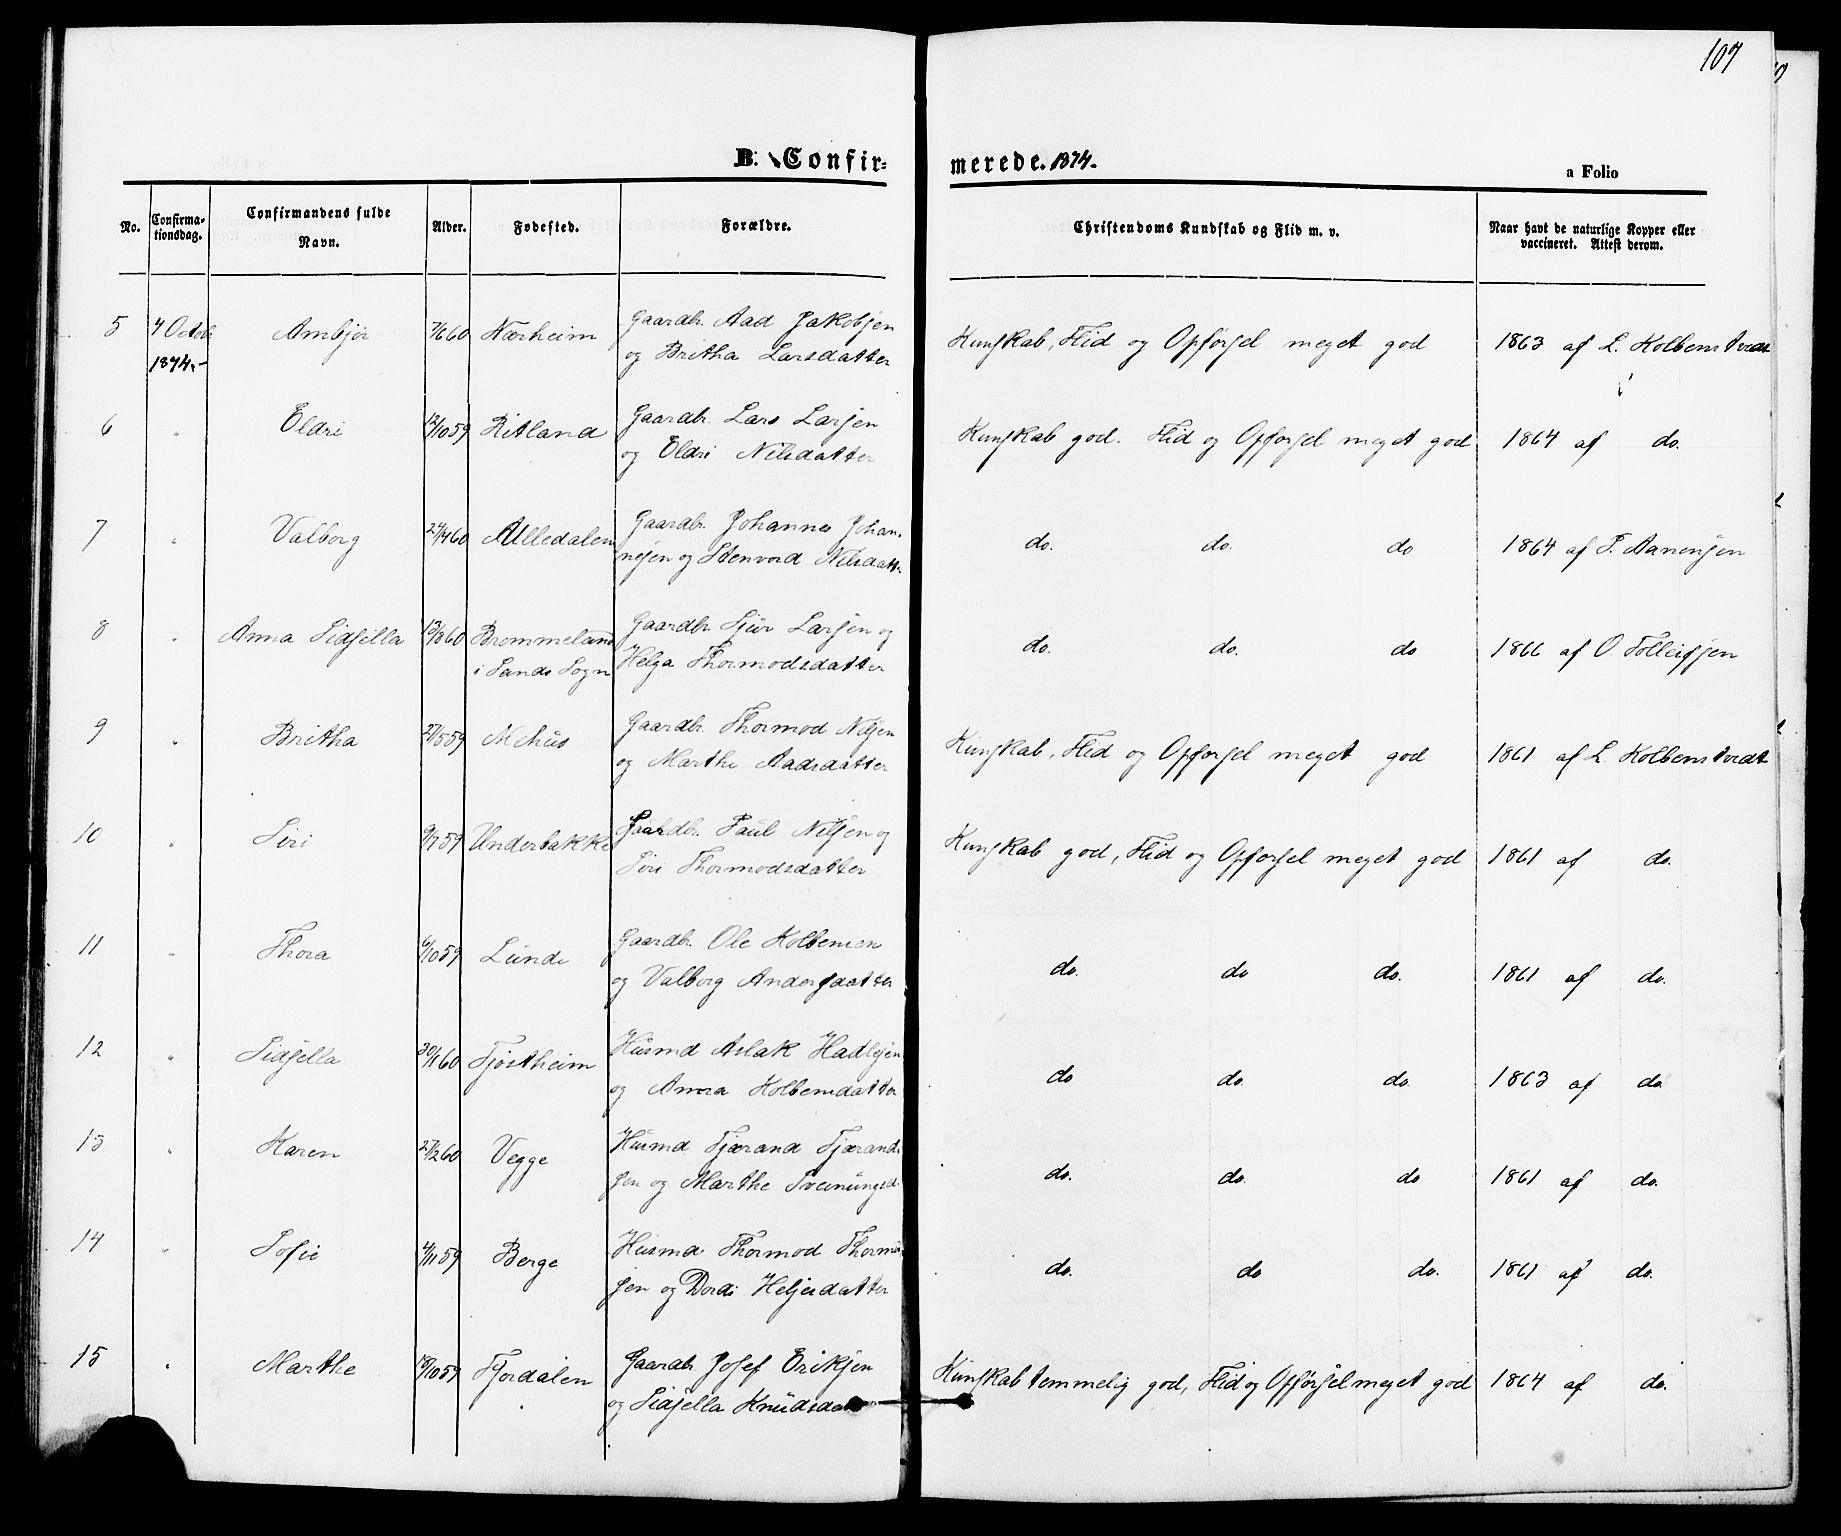 107
B. Confirmerede. 1874.
a Folio
No. Confirmationsdag. Confirmandens fulde Navn. Alder. Fødested. Forældre. Christendoms Kundskab og Flid m. v. Naar havt de naturlige Kopper eller vaccineret. Attest derom.
5 4 Octob. Ambjør 7/6 60 Nærheim Gaardbr. Aad Jakobsen Kunskab, Flid og Opførsel meget god 1863 af L. Kolbenstvedt
1874.- og Britha Larsdatter
6 " Eldri 12/10 59 Ritland Gaardbr. Lars Larsen Kunskab god. Flid og Opførsel meget god 1864 af do.
og Eldri Nilsdatter
7 " Valborg 24/4 60 Alledalen Gaardbr. Johannes Johan- do. do. do 1864 af T. Aanensen
nesen og Stenvord Nilsdatt.
8 " Anna Sidsella 13/8 60 Brommeland Gaardbr. Sjur Larsen og do. do. do 1866 af O. Tolleifsen
i Sands Sogn Helga Thormodsdatter
9 " Britha 27/5 59 Mehus Gaardbr. Thormod Nilsen Kunskab, Flid og Opførsel meget god 1861 af L. Kolbenstvedt
og Marthe Aadsdatter
10 " Siri 9/7 59 Underbakke Gaardbr. Paul Nilsen og Kunskab god, Flid og Opførsel meget god 1861 af do.
Siri Thormodsdatter
11 " Thora 6/10 59 Lunde Gaardbr. Ole Kolbensen do. do do. 1861 af do.
og Valborg Andersdatter
12 " Sidsella 30/1 60 Tjøstheim Husmd Aslak Hadlesen do do. do. 1863 af do
og Anna Kolbensdatter
13 " Karen 27/2 60 Vegge Husmd Tjærand Tjærand- do. do. do 1861 af do.
sen og Marthe Sveinungsd.
14 " Sofie 4/11 59 Berge Husmd Thormod Thormod- do. do do. 1861 af do.
sen og Dordi Heljesdatter
15 " Marthe 18/10 59 Fjordalen Gaardbr. Josef Eriksen Kunskab temmelig god, Flid og Opførsel meget god 1864 af do.
og Sidsella Knudsdatt